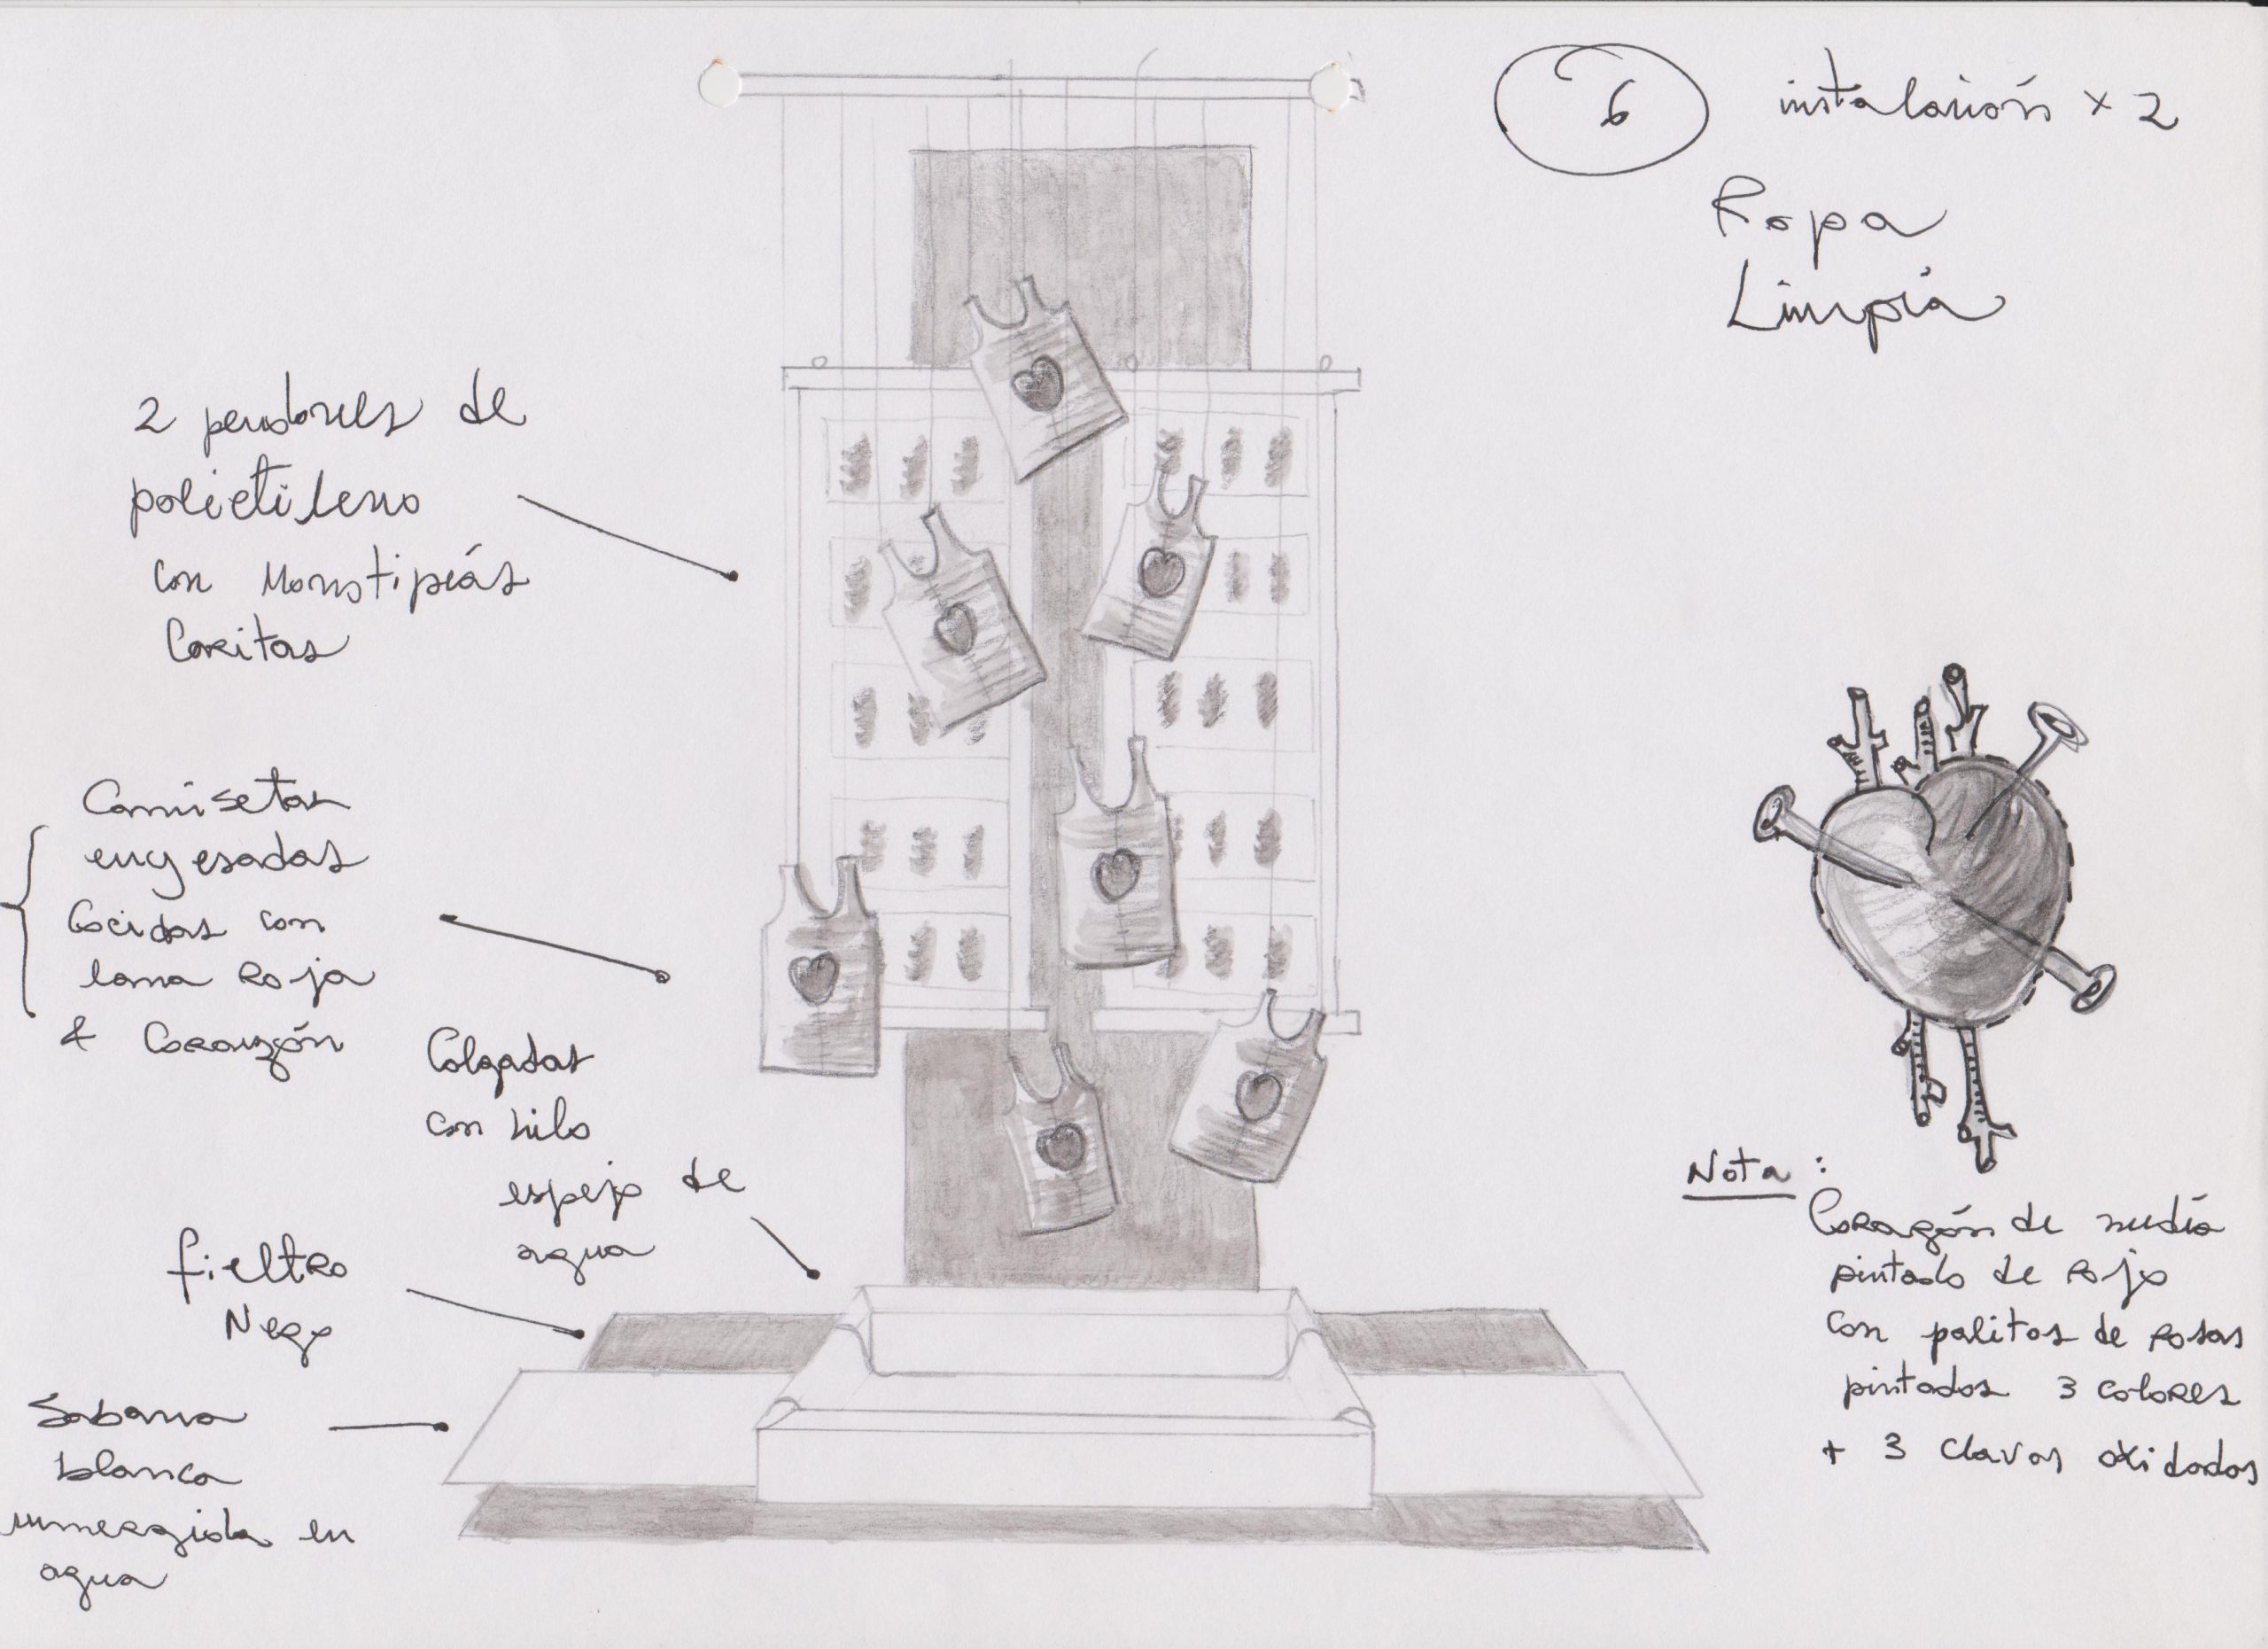 6
instalación x 2
Ropa
Limpia
2 pendones de
polietileno
con Monotipiás
Caritas
Camisetas
enyesadas
Cocidas con
lana Roja
& Corazón
Colgadas
con hilo
espejo de
agua
fieltro
Negro
Sabana
blanca
sumergida en
agua
Nota :
Corazón de media
pintado de rojo
con palitos de rosas
pintados 3 colores
+ 3 clavos oxidados